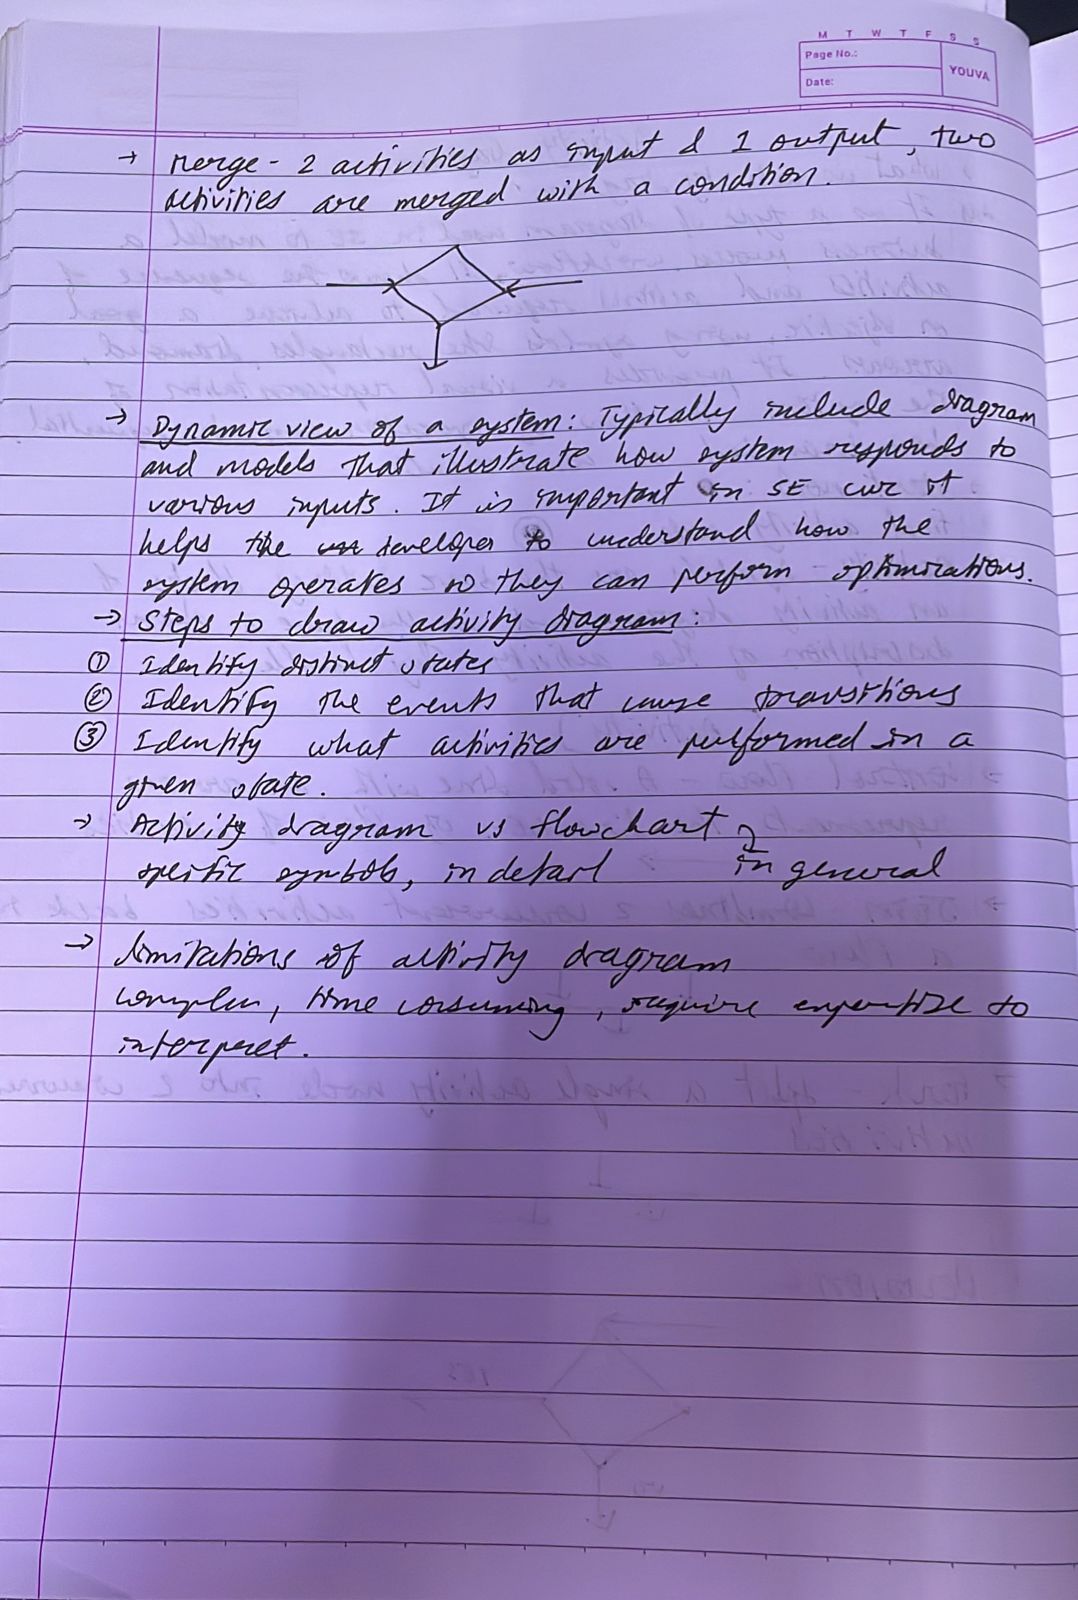 M T W T F S S
Page No.:
Date:
YOUVA
→ Merge - 2 activities as input & 1 output, two
activities are merged with a condition.
→ Dynamic view of a system: Typically include diagram
and models that illustrate how system responds to
various inputs. It is important in SE cuz it
helps the developer to understand how the
system operates so they can perform optimizations.
→ Steps to draw activity diagram:
① Identify distinct states
② Identify the events that cause transitions
③ Identify what activities are performed in a
given state.
→ Activity diagram vs flowchart
specific symbols, in detail in general
→ limitations of activity diagram
complex, time consuming, require expertise to
interpret.